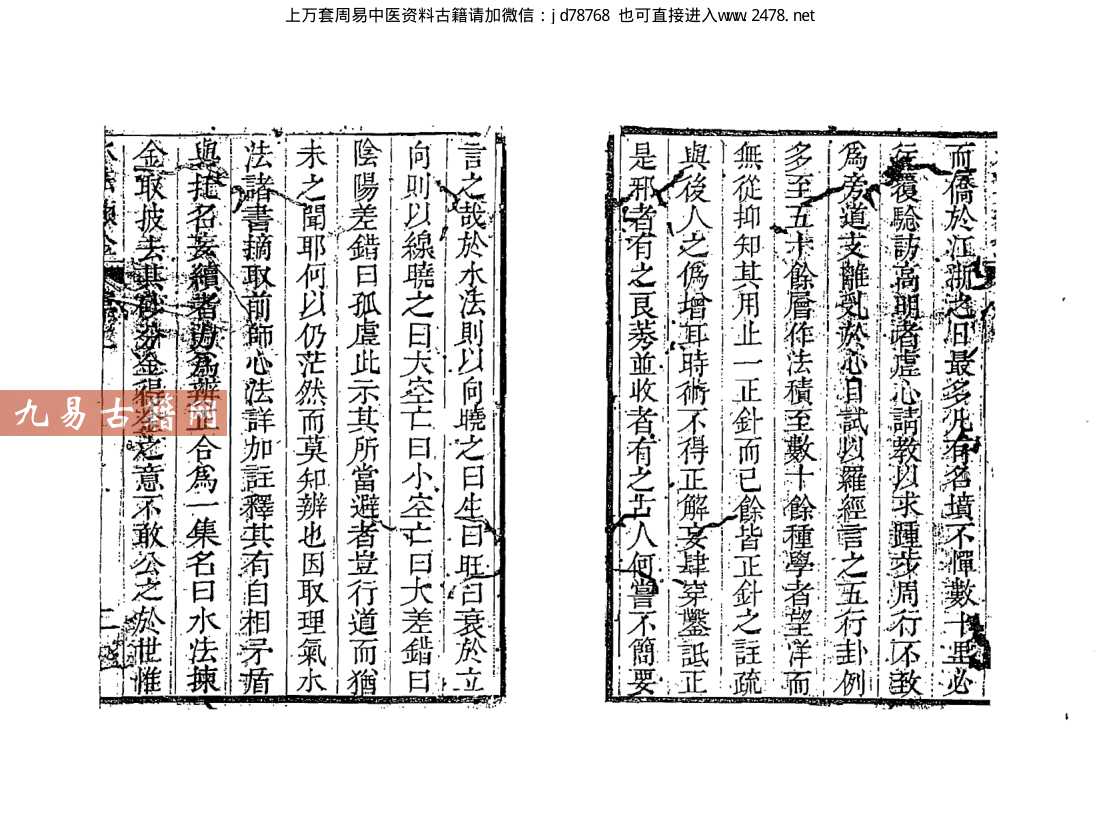 上万套周易中医资料古籍请加微信：jd78768 也可直接进入www.2478.net
而僑於江浙之日最多凡有名墳不憚數十里必
往覆騐訪高明者虛心請教以求踵步周行不教
為旁道支離乳於心目試以羅經言之五行卦例
多至五十餘層作法積至數十餘種學者望洋而
無從抑知其用止一正針而已餘皆正針之註疏
與後人之偽增耳時術不得正解妄肆穿鑿詆正
是邪者有之良莠並收者有之古人何嘗不簡要
言之哉於水法則以向曉之曰生曰旺曰衰於立
向則以線曉之曰大空亡曰小空亡曰大差錯曰
陰陽差錯曰孤虛此示其所當避者豈行道而猶
未之聞耶何以仍茫然而莫知辨也因取理氣水
法諸書摘取前師心法詳加註釋其有自相矛盾
與捏名妄續者為辨正合為一集名曰水法揀
金取披去其砂分金得金之意不敢公之於世惟
二
九易古籍網